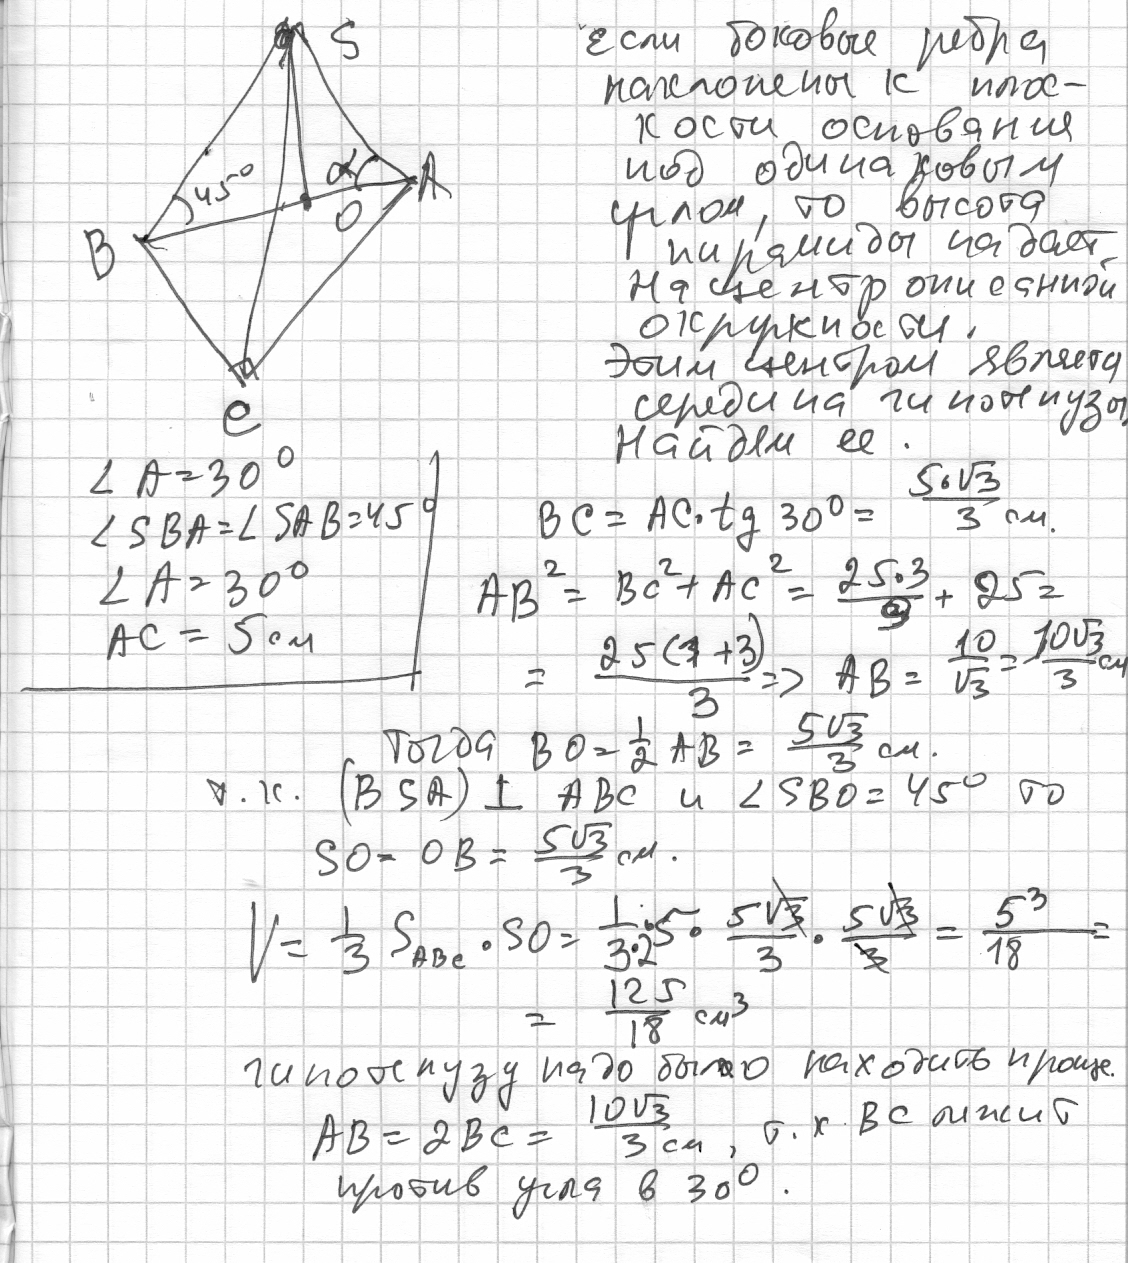 S
45°
α
A
O
B
C
Если боковые ребра
наклонены к плос-
кости основания
под одинаковым
углом, то высота
пирамиды падает
на центр описанной
окружности.
Этим центром является
середина гипотенузы,
Найдем ее.
∠A=30°
∠SBA=∠SAB=45°
∠A=30°
AC = 5см
BC = AC·tg 30° = 5·√3/3 см.
AB² = BC² + AC² = 25·3/9 + 25 =
= 25(1+3)/3 => AB = 10/√3 = 10√3/3 см
Тогда BO = 1/2 AB = 5√3/3 см.
т.к. (BSA) ⊥ ABC и ∠SBO = 45° то
SO = OB = 5√3/3 см.
V = 1/3 S_ABC · SO = 1/(3·2) ·5· 5√3/3 · 5√3/3 = 5³/18 =
= 125/18 см³
гипотенузу надо было находить проще.
AB = 2BC = 10√3/3 см, т.к. BC лежит
против угла в 30°.